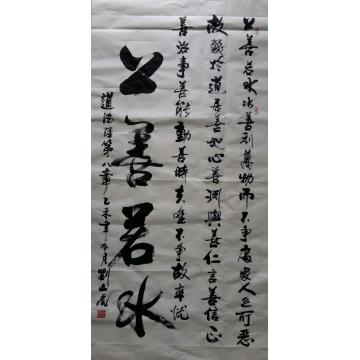 上善若水水善利萬物而不爭處衆人之所惡
故幾於道居善地心善淵與善仁言善信正
善治事善能動善時夫唯不爭故無尤
上善若水
道德經第八章乙未年